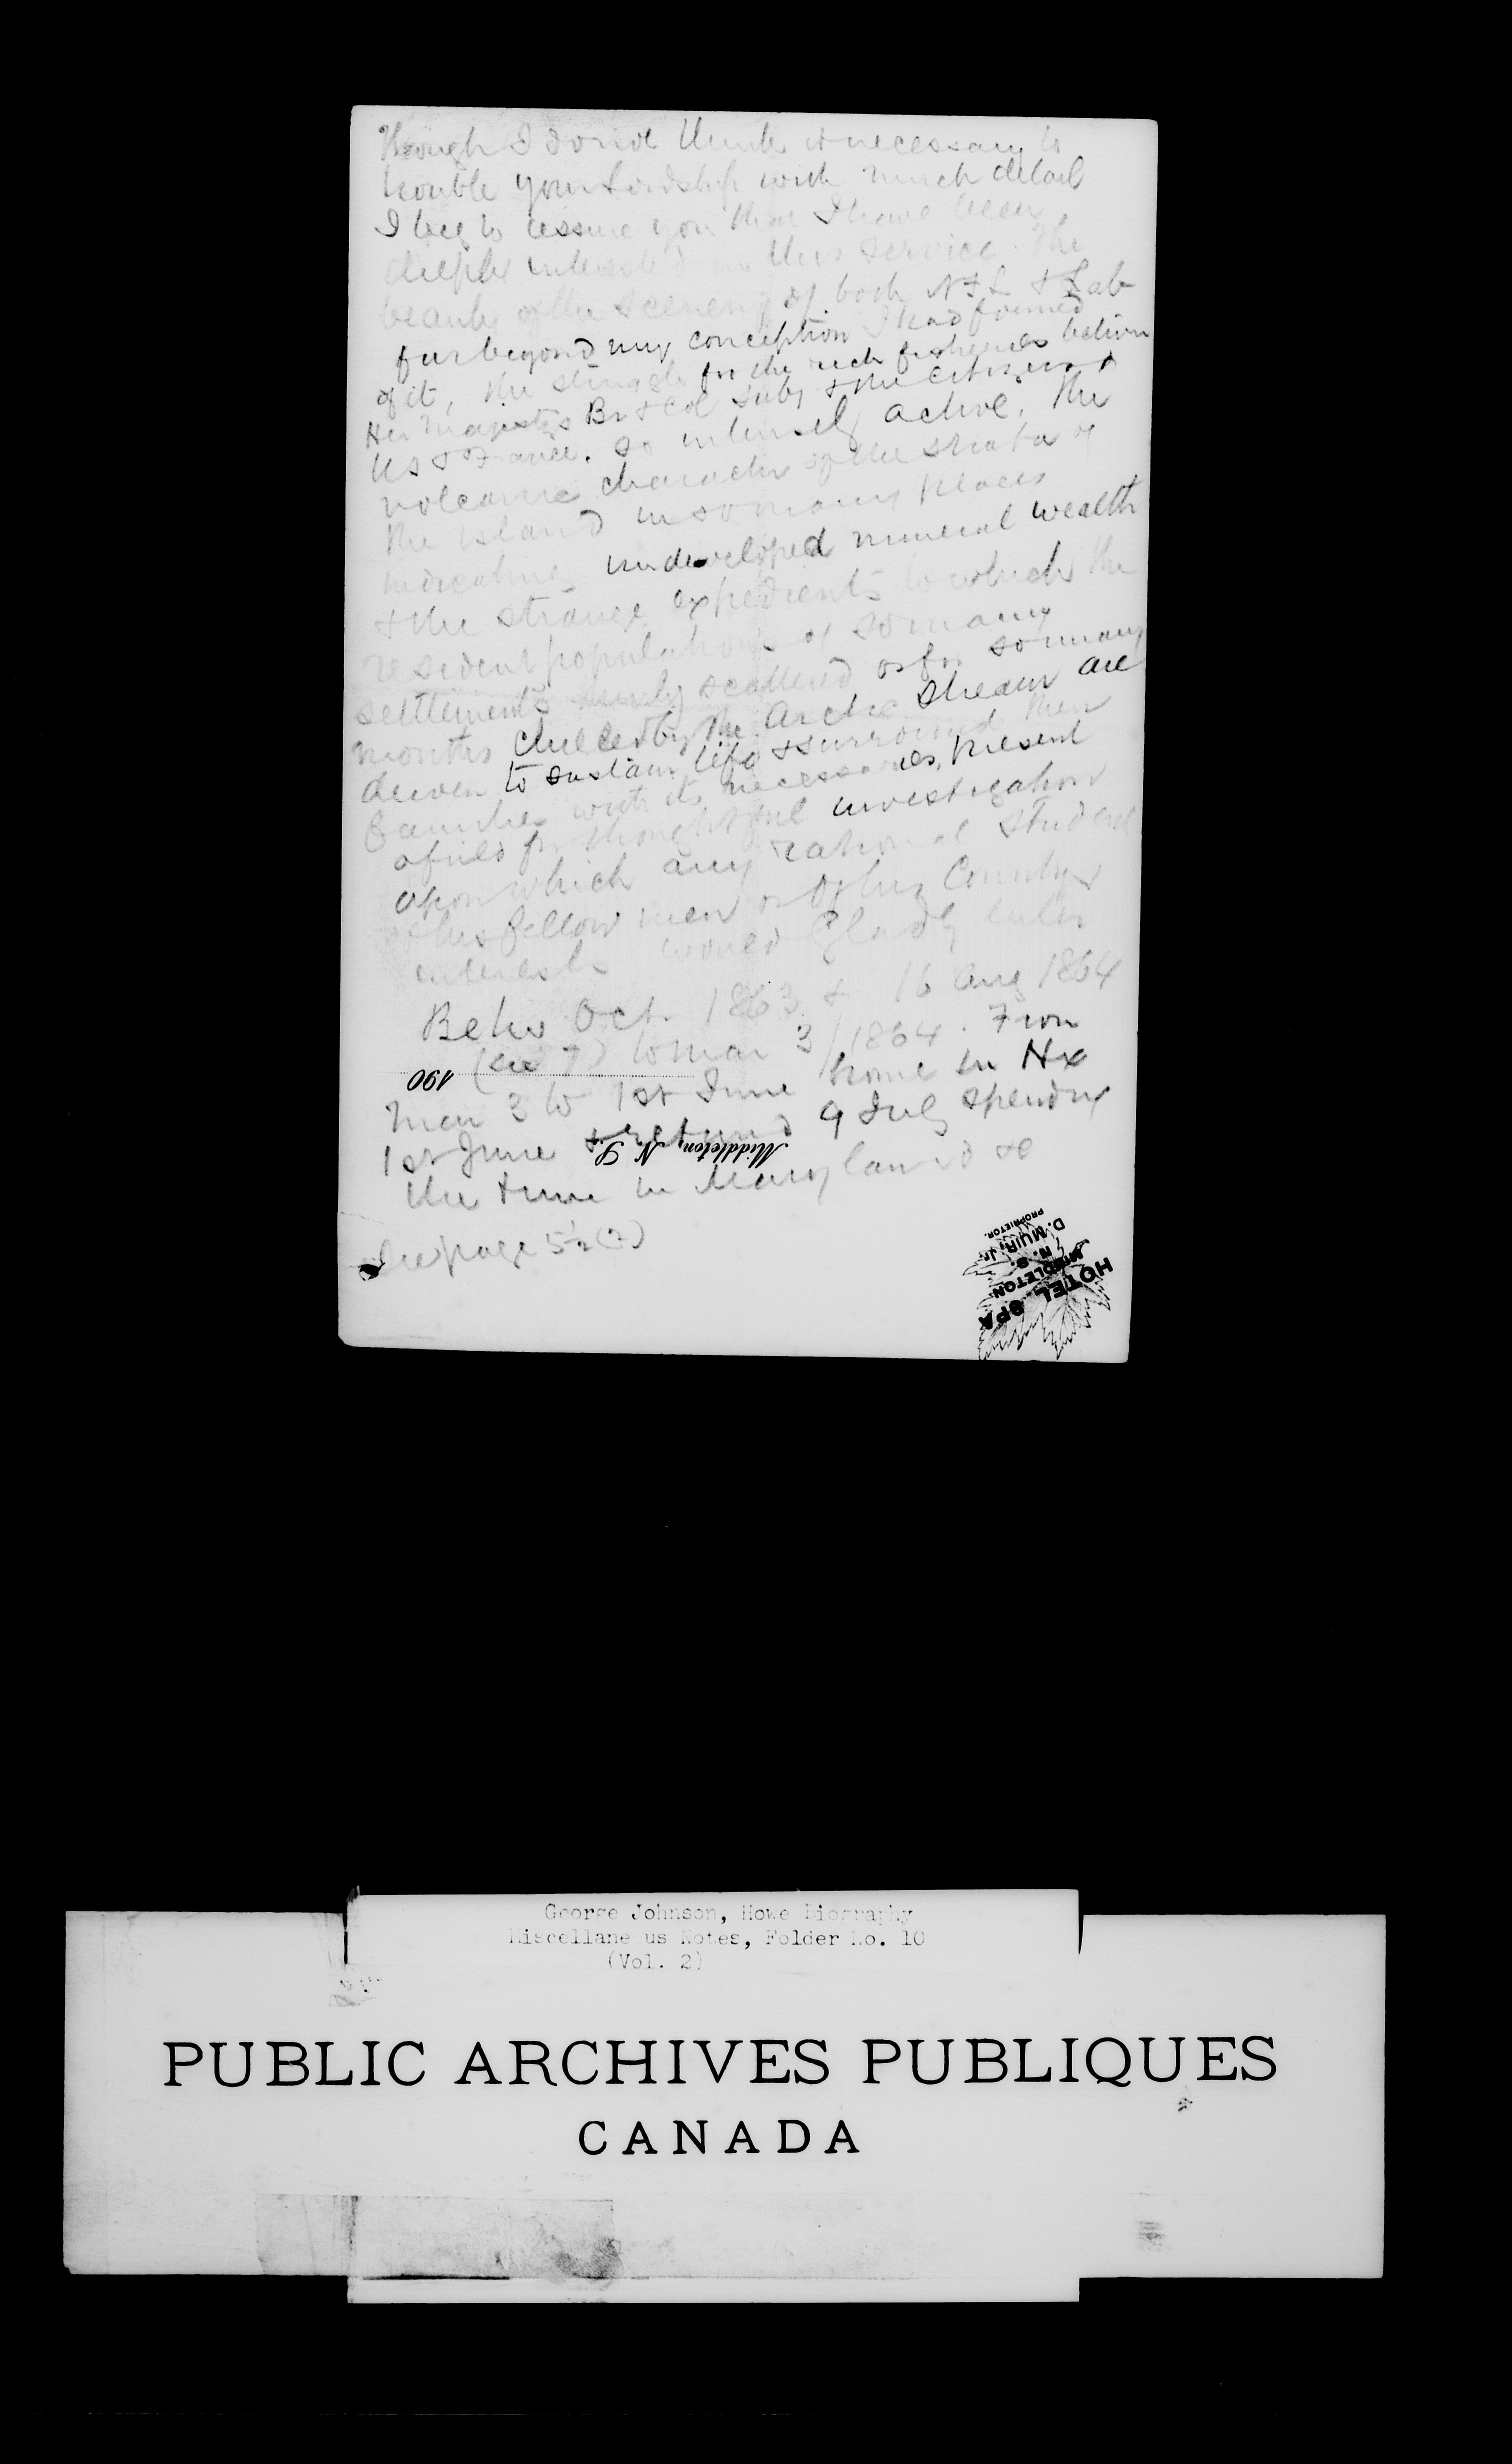 Though I do not think it necessary to
trouble your Lordship with much detail
I beg to assure you that I have been
deeply interested in this service. The
beauty of the scenery of both Nfl & Lab
far beyond my conception I had formed
of it, the struggle for the rich fisheries between
Her Majestys Br & Col subj & the citizens of
US & France. so intensely active, the
volcanic character of the strata of
the island in so many places
indicating undeveloped mineral wealth
& the strange expedients to which the
resident populations of so many
settlements thinly scattered & for so many
months chilled by the Arctic stream are
driven to sustain life & surround their
families with its necessaries, present
a field for thoughtful investigation
upon which any rational student
of his fellow men or of his Country's
interests would gladly enter
Oct. 1863 & 16 Aug 1864
(see 7) to Mar 3/1864. From
190
Mar 3 to 1st June home in Hx
1st June & returned 9 July spending
Middleton, N. S.
the time in Maryland &c
See page 5½ (2)
HOTEL SPA
MIDDLETON
N. S.
D. MUIR, Jr.
PROPRIETOR.
George Johnson, Howe Biography
Miscellane us Notes, Folder No. 10
(Vol. 2)
PUBLIC ARCHIVES PUBLIQUES
CANADA